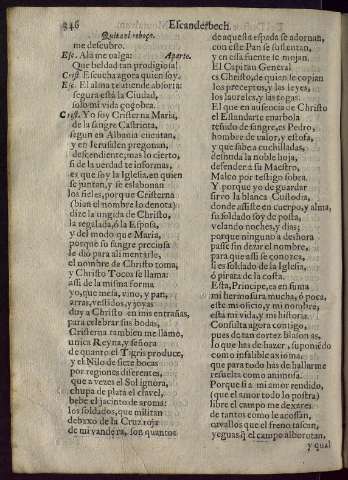 246
Escanderbech.
Quitase el reboço.
me descubro.
Esc. Alà me valga:
Aparte.
Que beldad tan prodigiosa!
Crist. Escucha agora quien soy.
Esc. El alma te atiende absorta:
segura està la Ciudad,
solo mi vida çoçobra.
Crist. Yo soy Cristerna Maria,
de la sangre Castriota,
segun en Albania cuentan,
y en Ierusalen pregonan,
descendiente, mas lo cierto,
si de la verdad te informas,
es que soy la Iglesia, en quien
se juntan, y se eslabonan
los fieles, porque Cristerna
(bien el nombre lo denota)
dize la ungida de Christo,
la regalada, ò la Esposa,
y del modo que Maria,
porque su sangre preciosa
le dió para alimentarle,
el nombre de Christo toma,
y Christo Tocos se llama:
assi de la misma forma
yo, que mesa, vino, y pan,
arras, vestidos, y joyas
doy a Christo en mis entrañas,
para celebrar sus bodas,
Cristerna tambien me llamo,
unica Reyna, y señora
de quanto el Tigris produce,
y el Nilo de siete bocas
por regiones diferentes,
que a vezes el Sol ignora,
chupa de plata el clavel,
bebe el jacinto de aroma:
los soldados, que militan
debaxo de la Cruz roja
de mi vandera, son quantos
de aquesta espada se adornan,
con este Pan se sustentan,
y en essa fuente se mojan.
El Capitan General
es Christo, de quien le copian
los preceptos, y las leyes,
los laureles, y las togas.
El que en ausencia de Christo
el Estandarte enarbola
teñido de sangre, es Pedro,
hombre de valor, y estofa,
y que sabe a cuchilladas,
desnuda la noble hoja,
defender a su Maestro,
Malco por testigo sobra.
Y porque yo de guardar
sirvo la blanca Custodia,
donde assiste en cuerpo, y alma,
su soldado soy de posta,
velando noches, y dias;
porque ninguno a deshora
passe sin dezir el nombre,
para que assi se conozca,
si es soldado de la Iglesia,
ò pirata de la costa.
Esta, Principe, es en suma
mi hermosura mucha, ò poca,
este mi oficio, y mi nombre,
esta mi vida, y mi historia.
Consulta agora contigo,
pues de tan cortés blasonas,
lo que has de hazer, suponiēdo
como infalible axioma:
que para todo has de hallarme
resuelta como animosa.
Porque si a mi amor rendido,
(que el amor todo lo postra)
libre el campo me dexares
de tantos como le acossan,
cavallos que el freno tascan,
yeguas q̃ el campo alborotan,
y qual